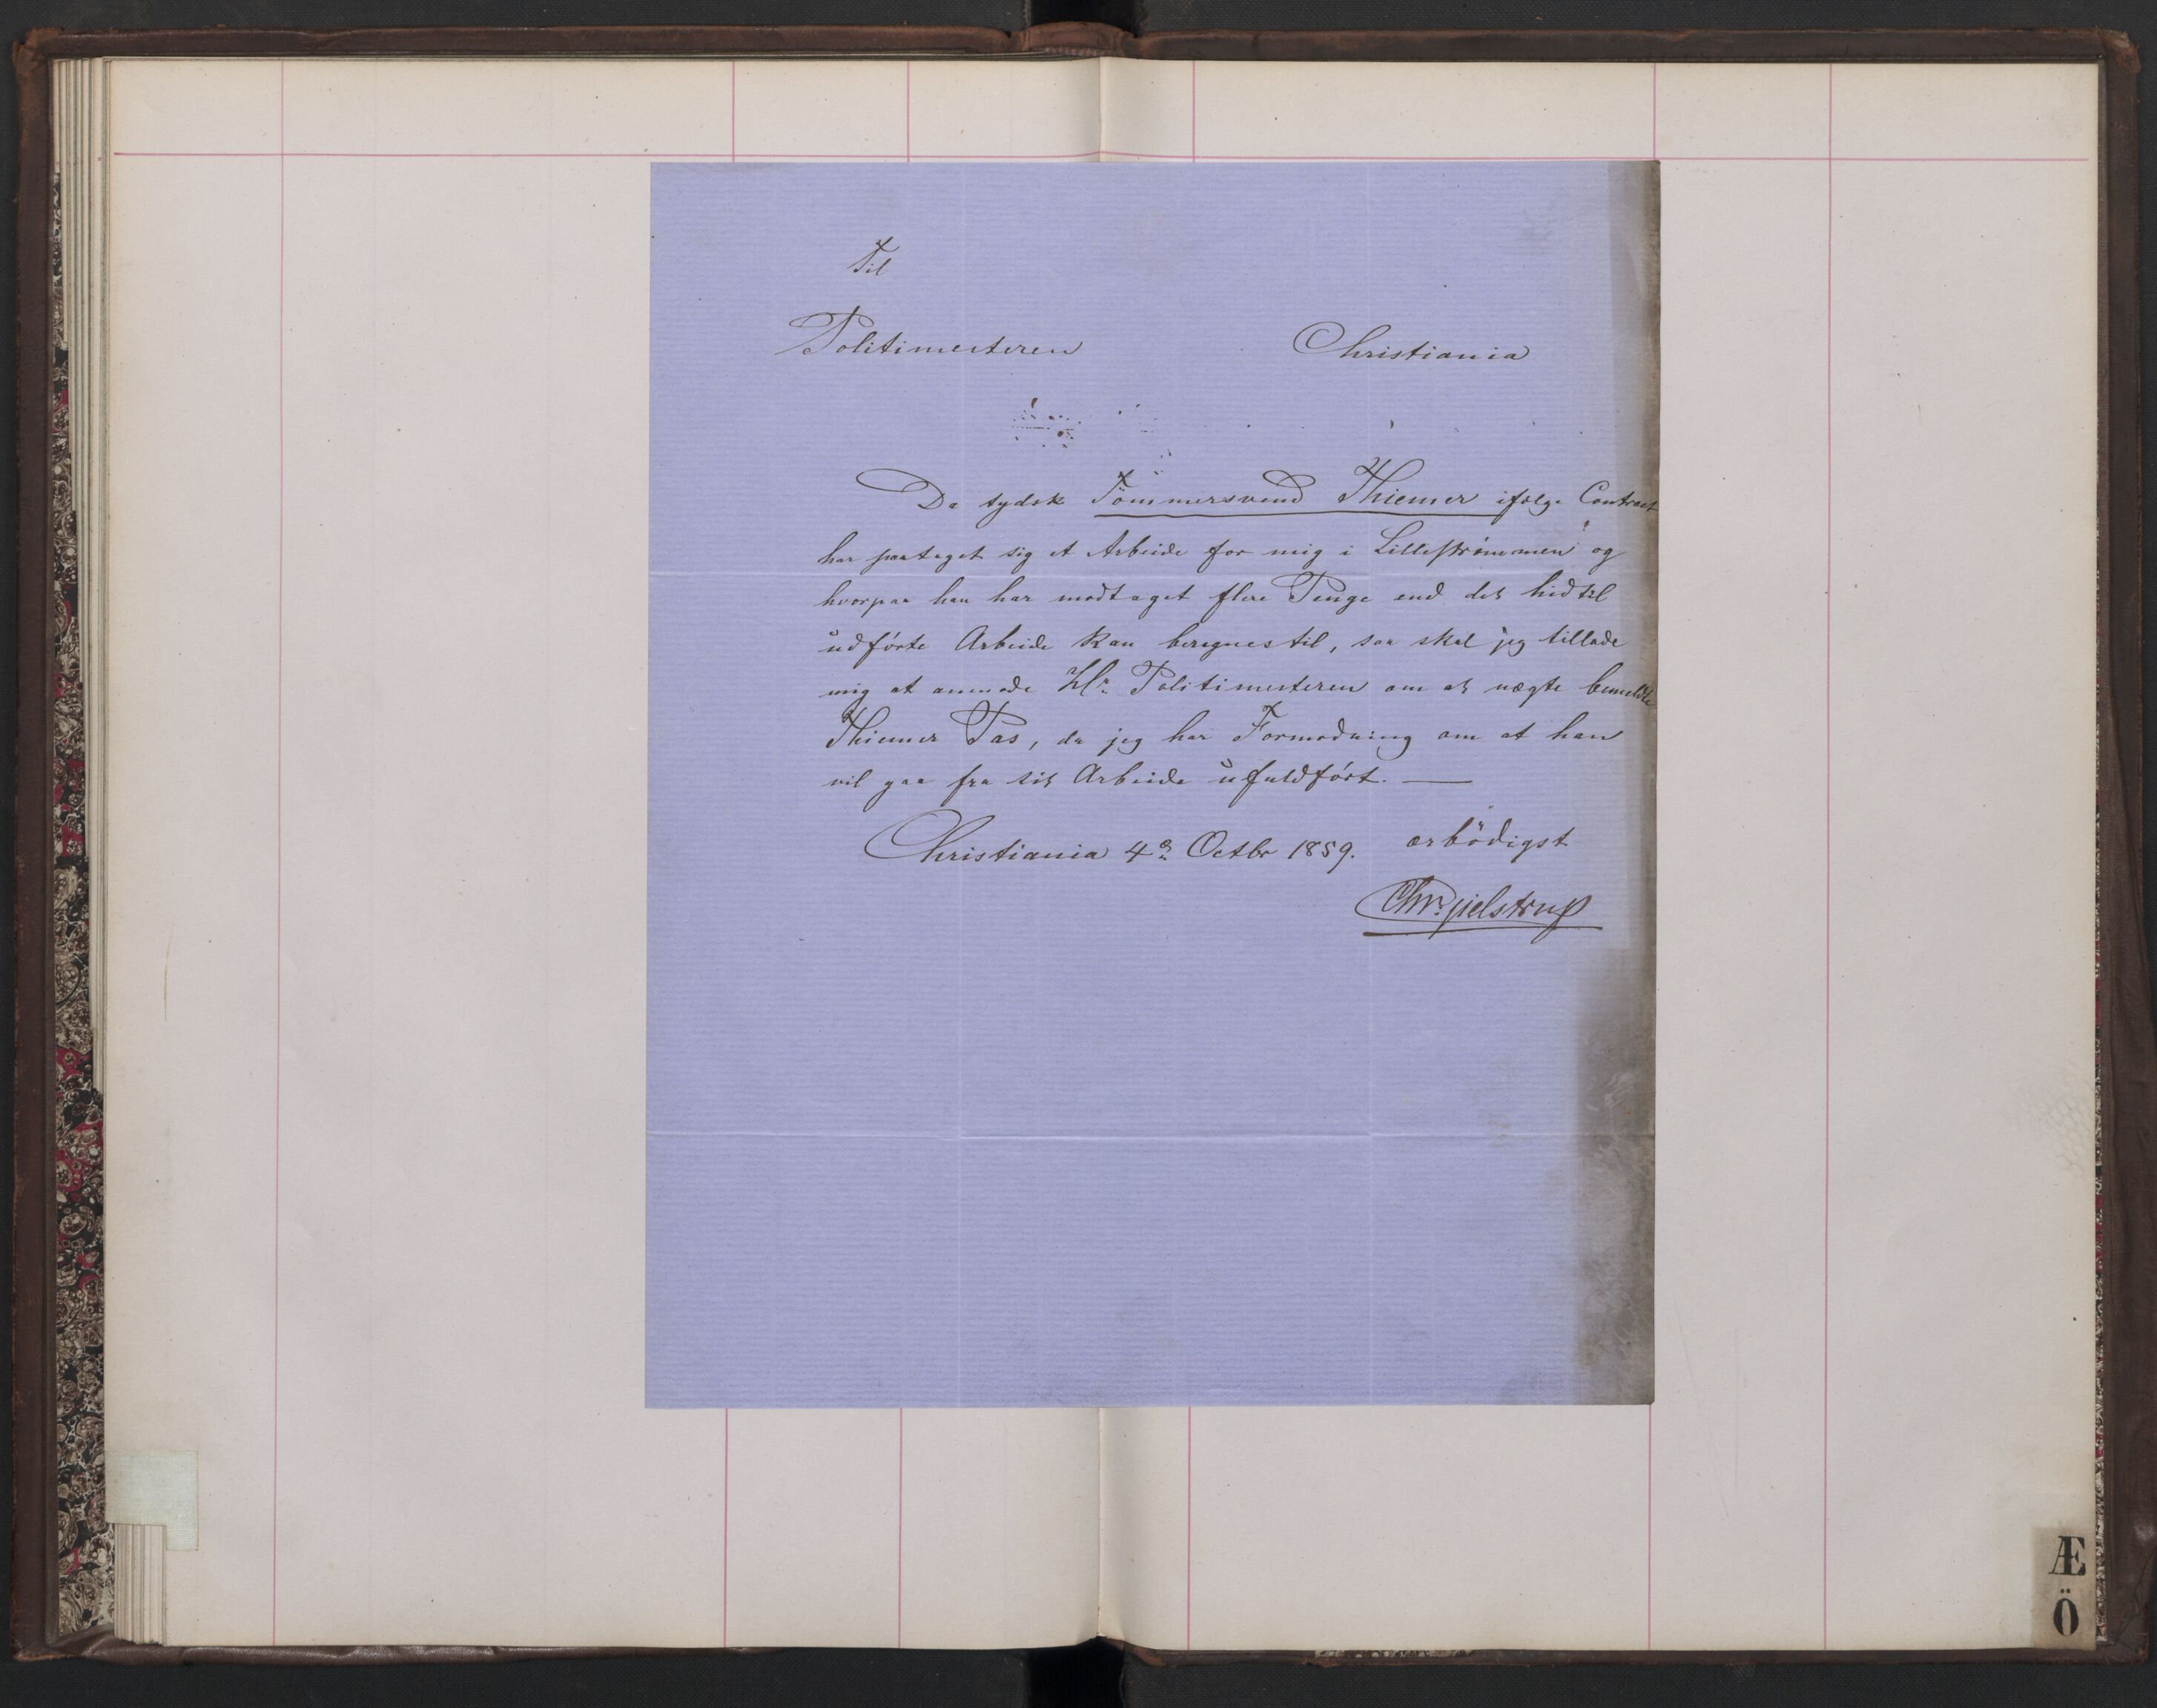 Til
Politimesteren Christiania
Da tydsk Tömmersvend Thiemer ifølge Contract
har paataget sig et Arbeide for mig i Lillestrømmen og
hvorpaa han har modtaget flere Penge end det hidtil
udførte Arbeide kan beregnes til, saa skal jeg tillade
mig at anmode Hr. Politimesteren om at nægte bemeldte
Thiemer Pas, da jeg har Formodning om at han
vil gaa fra sit Arbeide ufuldført. —
Christiania 4de Octbr 1859. ærbödigst
Chr. Jielstrup
Æ
Ö